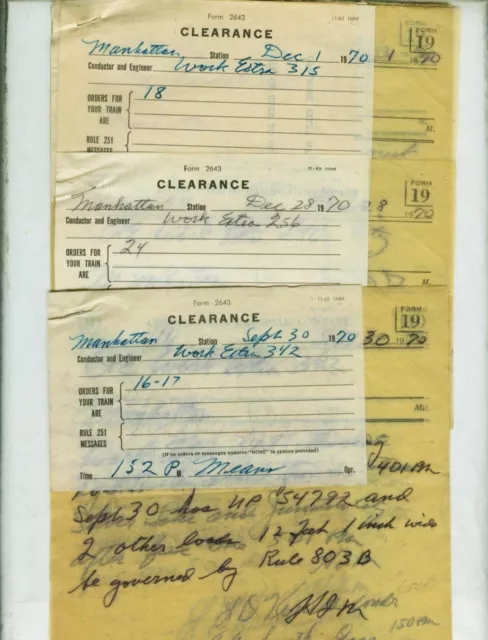 Form 2643
CLEARANCE
Manhattan Station Dec 1 1970
Conductor and Engineer Work Extra 315
ORDERS FOR YOUR TRAIN ARE { 18
RULE 251 MESSAGES {
FORM 19
31 1970
M.
M.
Form 2643
CLEARANCE
Manhattan Station Dec 28 1970
Conductor and Engineer Work Extra 256
ORDERS FOR YOUR TRAIN ARE { 24
FORM 19
28 1970
Form 2643
CLEARANCE
Manhattan Station Sept 30 1970
Conductor and Engineer Work Extra 342
ORDERS FOR YOUR TRAIN ARE { 16-17
RULE 251 MESSAGES {
(If no orders or messages endorse "NONE" in spaces provided)
Time 152 P M. Means Opr.
FORM 19
30 1970
401 PM
Sept 30 has UP 54792 and
2 other loads 12 feet 1 inch wide
be governed by Rule 803B
150 PM